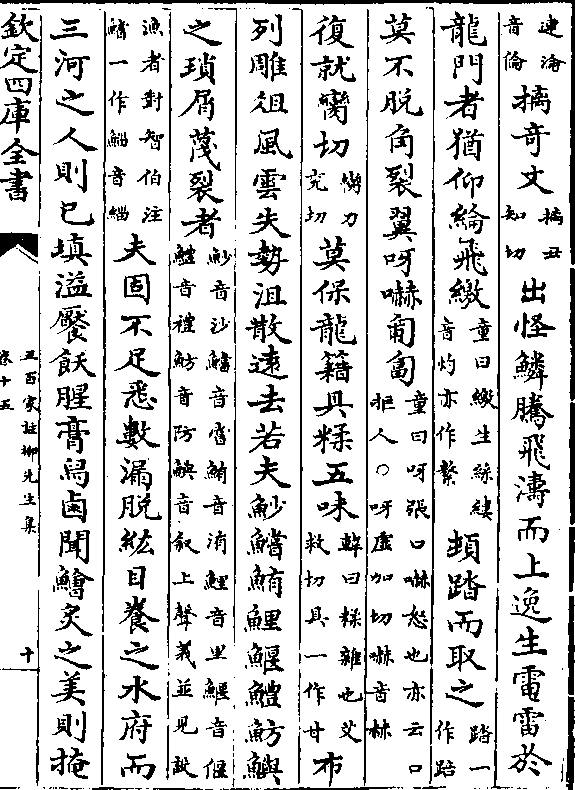 連淪音倫摛奇文摛丑知切出怪鱗騰飛濤而上逸生電雷於
龍門者猶仰綸飛繳童曰繳生絲縷音灼亦作繫頫踏而取之踏一作蹈
莫不脫角裂翼呀嚇匍匐童曰呀張口嚇怒也亦云口拒人○呀虚加切嚇音赫
復就臠切臠力兖切莫保龍籍具糅五味韓曰糅雜也女救切具一作甘布
列雕俎風雲失勢沮散遠去若夫魦鱨鮪鯉鰋鱧魴鱮
之瑣屑蔑裂者魦音沙鱨音嘗鮪音洧鯉音里鰋音偃鱧音禮魴音防鱮音叙上聲義並見說
漁者對智伯注鱨一作鯔音緇夫固不足悉數漏脫紘目養之水府而
三河之人則已填溢饜飫腥膏舄鹵聞鱠炙之美則掩
欽定四庫全書
五百家註柳先生集
卷十五
十